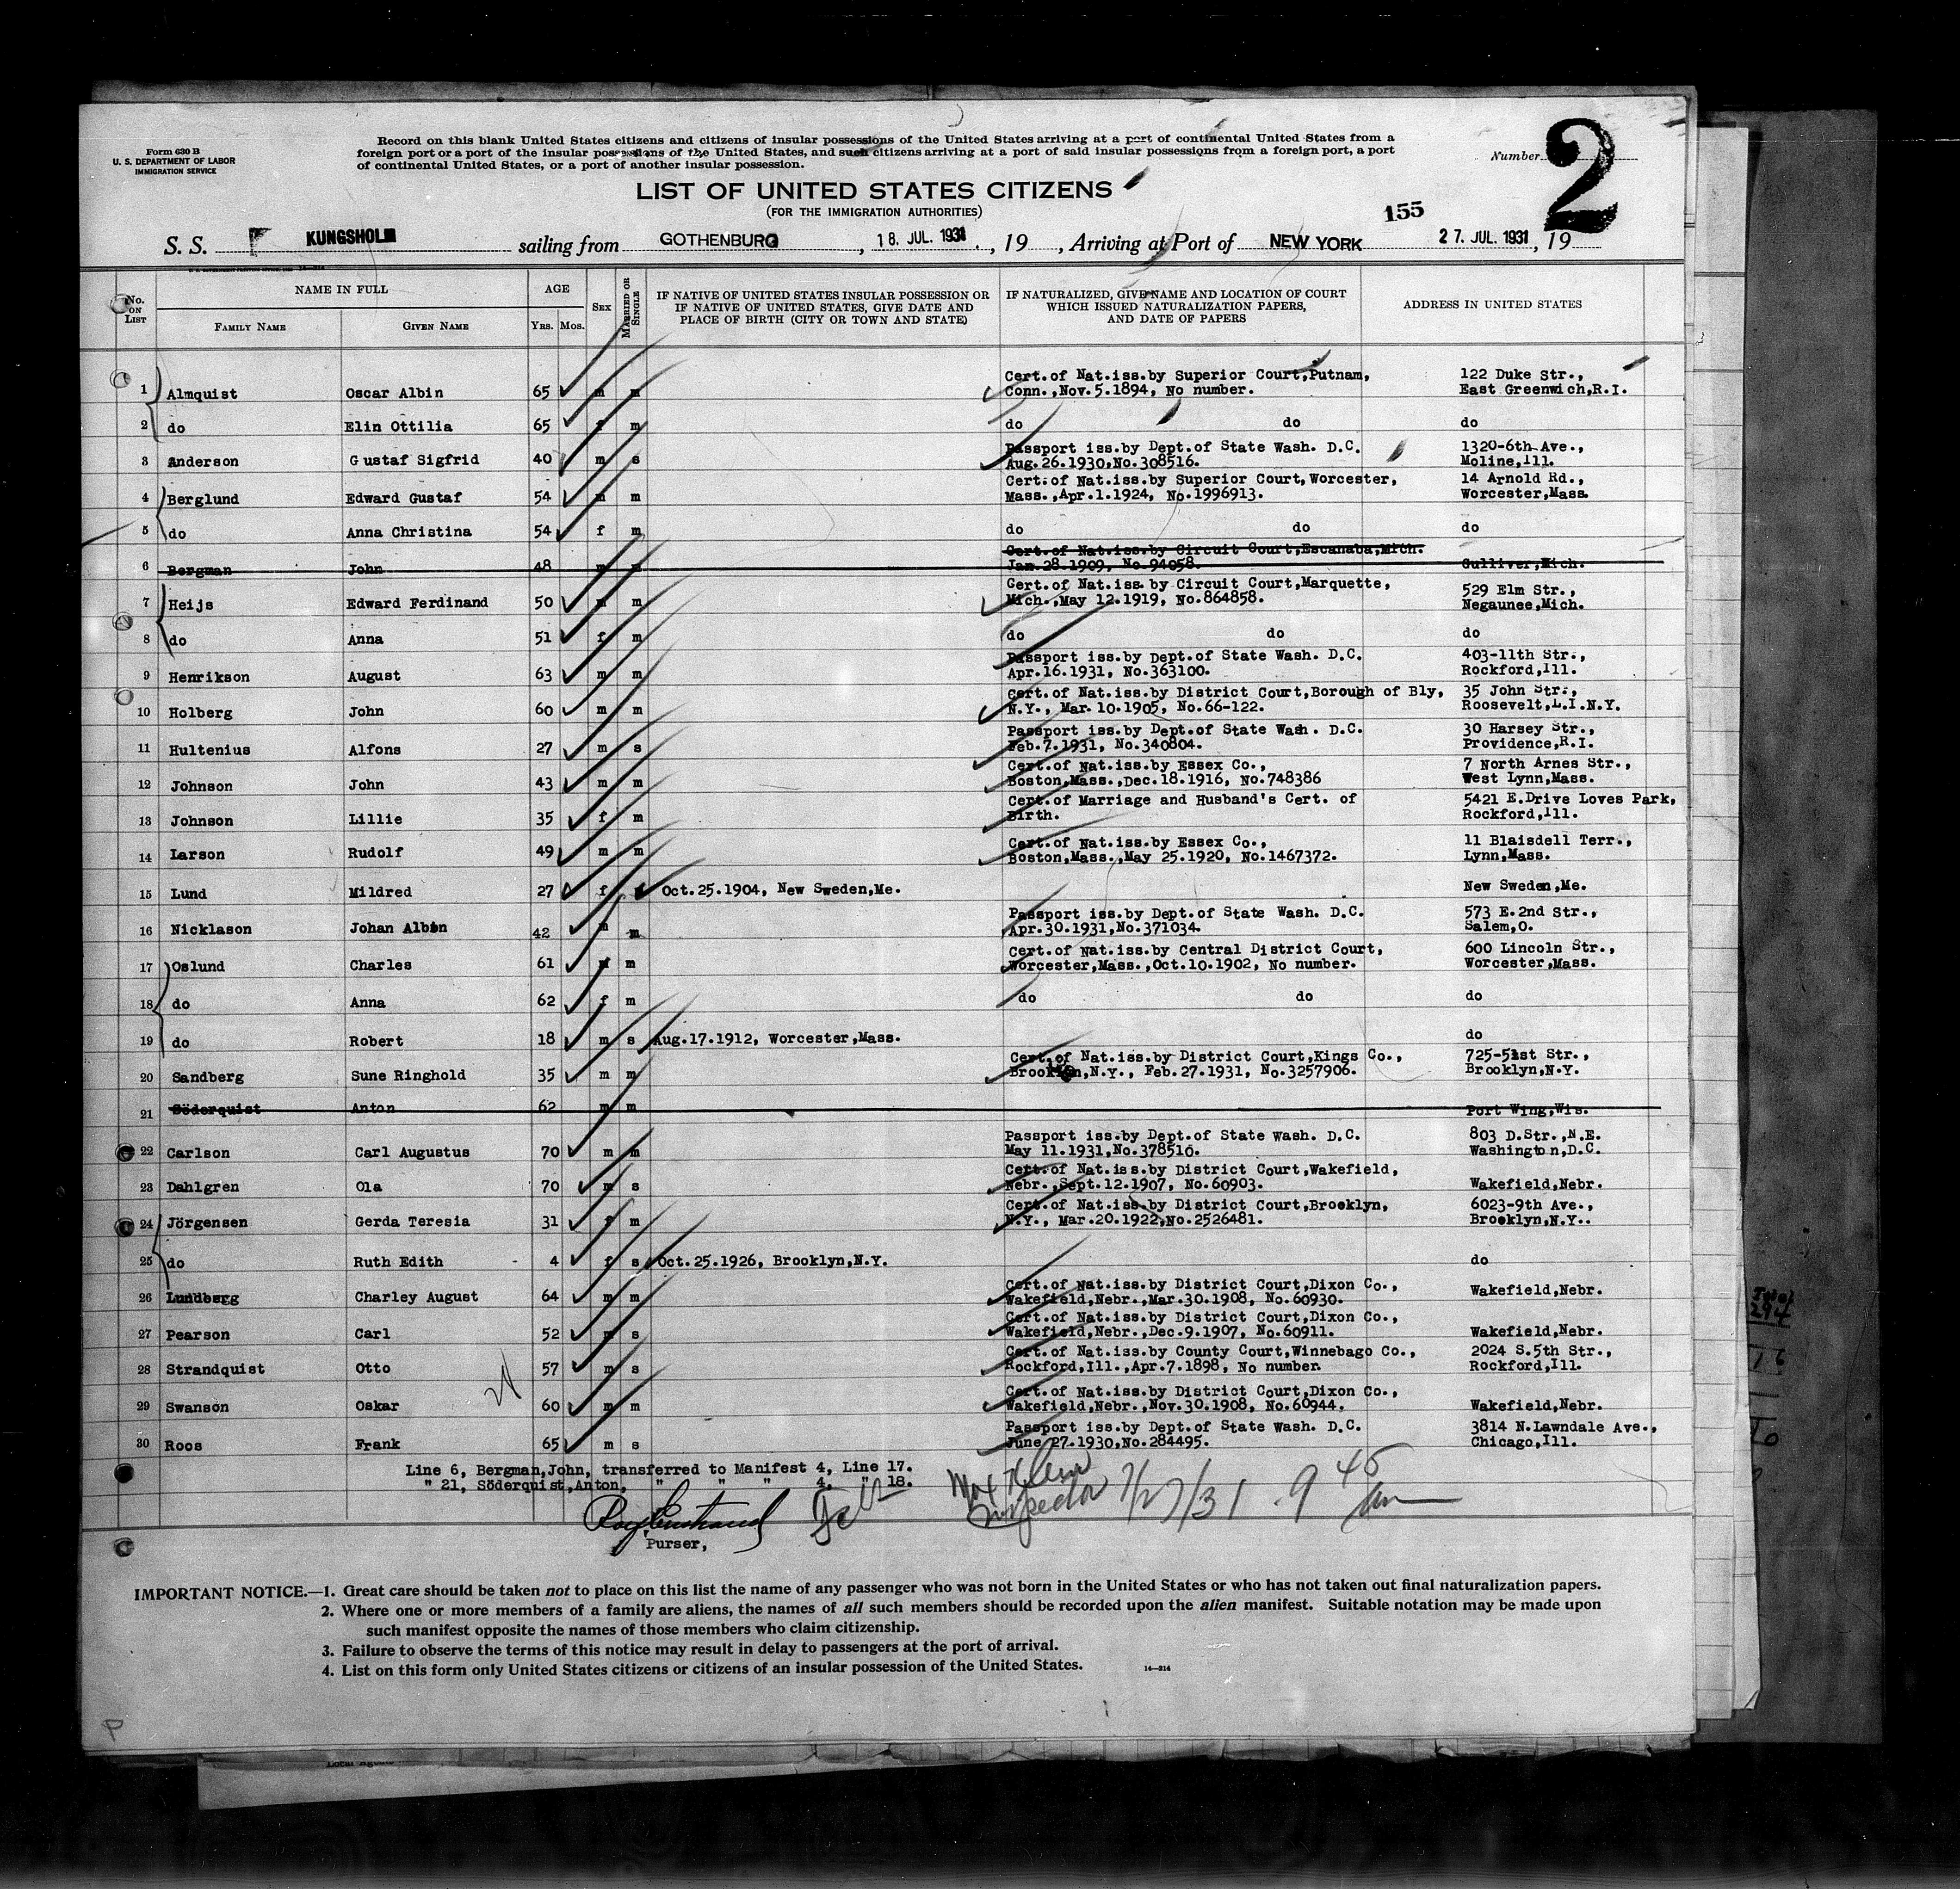 Form 630 B
U. S. DEPARTMENT OF LABOR
IMMIGRATION SERVICE
Record on this blank United States citizens and citizens of insular possessions of the United States arriving at a port of continental United States from a
foreign port or a port of the insular possessions of the United States, and such citizens arriving at a port of said insular possessions from a foreign port, a port
of continental United States, or a port of another insular possession.
Number 2
LIST OF UNITED STATES CITIZENS
(FOR THE IMMIGRATION AUTHORITIES)
155
S. S. KUNGSHOLM sailing from GOTHENBURG, 18. JUL. 1931., 19 , Arriving at Port of NEW YORK 27. JUL. 1931, 19
No. ON LIST
NAME IN FULL
FAMILY NAME
GIVEN NAME
AGE
Yrs. Mos.
SEX
MARRIED OR SINGLE
IF NATIVE OF UNITED STATES INSULAR POSSESSION OR
IF NATIVE OF UNITED STATES, GIVE DATE AND
PLACE OF BIRTH (CITY OR TOWN AND STATE)
IF NATURALIZED, GIVE NAME AND LOCATION OF COURT
WHICH ISSUED NATURALIZATION PAPERS,
AND DATE OF PAPERS
ADDRESS IN UNITED STATES
Cert.of Nat.iss.by Superior Court,Putnam, 122 Duke Str.,
1 Almquist Oscar Albin 65 m m Conn.,Nov.5.1894, No number. East Greenwich,R.I.
2 do Elin Ottilia 65 f m do do do
Passport iss.by Dept.of State Wash. D.C. 1320-6th Ave.,
3 Anderson Gustaf Sigfrid 40 m s Aug.26.1930,No.308516. Moline,Ill.
Cert.of Nat.iss.by Superior Court,Worcester, 14 Arnold Rd.,
4 Berglund Edward Gustaf 54 m m Mass.,Apr.1.1924, No.1996913. Worcester,Mass.
5 do Anna Christina 54 f m do do do
Cert.of Nat.iss.by Circuit Court,Escanaba,Mich.
6 Bergman John 48 m m Jan.28.1909, No.94058. Gulliver,Mich.
Cert.of Nat.iss.by Circuit Court,Marquette, 529 Elm Str.,
7 Heijs Edward Ferdinand 50 m m Mich.,May 12.1919, No.864858. Negaunee,Mich.
8 do Anna 51 f m do do do
Passport iss.by Dept.of State Wash. D.C. 403-11th Str.,
9 Henrikson August 63 m m Apr.16.1931, No.363100. Rockford,Ill.
Cert.of Nat.iss.by District Court,Borough of Bly, 35 John Str.,
10 Holberg John 60 m m N.Y., Mar.10.1905, No.66-122. Roosevelt,L.I.N.Y.
Passport iss.by Dept.of State Wash. D.C. 30 Harsey Str.,
11 Hultenius Alfons 27 m s Feb.7.1931, No.340804. Providence,R.I.
Cert.of Nat.iss.by Essex Co., 7 North Arnes Str.,
12 Johnson John 43 m m Boston,Mass.,Dec.18.1916, No.748386 West Lynn,Mass.
Cert.of Marriage and Husband's Cert. of 5421 E.Drive Loves Park,
13 Johnson Lillie 35 f m Birth. Rockford,Ill.
Cert.of Nat.iss.by Essex Co., 11 Blaisdell Terr.,
14 Larson Rudolf 49 m m Boston,Mass.,May 25.1920, No.1467372. Lynn,Mass.
15 Lund Mildred 27 f Oct.25.1904, New Sweden,Me. New Sweden,Me.
Passport iss.by Dept.of State Wash. D.C. 573 E.2nd Str.,
16 Nicklason Johan Albin 42 m m Apr.30.1931,No.371034. Salem,O.
Cert.of Nat.iss.by Central District Court, 600 Lincoln Str.,
17 Oslund Charles 61 m m Worcester,Mass.,Oct.10.1902, No number. Worcester,Mass.
18 do Anna 62 f m do do do
19 do Robert 18 m s Aug.17.1912, Worcester,Mass. do
Cert.of Nat.iss.by District Court,Kings Co., 725-51st Str.,
20 Sandberg Sune Ringhold 35 m m Brooklyn,N.Y., Feb.27.1931, No.3257906. Brooklyn,N.Y.
21 Söderquist Anton 62 m m Port Wing,Wis.
Passport iss.by Dept.of State Wash. D.C. 803 D.Str.,N.E.
22 Carlson Carl Augustus 70 m m May 11.1931,No.378510. Washington,D.C.
Cert.of Nat.iss.by District Court,Wakefield,
23 Dahlgren Ola 70 m s Nebr.,Sept.12.1907, No.60903. Wakefield,Nebr.
Cert.of Nat.iss.by District Court,Brooklyn, 6023-9th Ave.,
24 Jörgensen Gerda Teresia 31 f m N.Y., Mar.20.1922,No.2526481. Brooklyn,N.Y..
25 do Ruth Edith 4 f s Oct.25.1926, Brooklyn,N.Y. do
Cert.of Nat.iss.by District Court,Dixon Co.,
26 Lundberg Charley August 64 m m Wakefield,Nebr.,Mar.30.1908, No.60930. Wakefield,Nebr.
Cert.of Nat.iss.by District Court,Dixon Co.,
27 Pearson Carl 52 m s Wakefield,Nebr.,Dec.9.1907, No.60911. Wakefield,Nebr.
Cert.of Nat.iss.by County Court,Winnebago Co., 2024 S.5th Str.,
28 Strandquist Otto 57 m s Rockford,Ill.,Apr.7.1898, No number. Rockford,Ill.
Cert.of Nat.iss.by District Court,Dixon Co.,
29 Swanson Oskar 60 m m Wakefield,Nebr.,Nov.30.1908, No.60944. Wakefield,Nebr.
Passport iss.by Dept.of State Wash. D.C. 3814 N.Lawndale Ave.,
30 Roos Frank 65 m s June 27.1930,No.284495. Chicago,Ill.
Line 6, Bergman,John, transferred to Manifest 4, Line 17.
" 21, Söderquist,Anton, " " " 4, " 18.
Max Klein
Inspector 7/27/31 9 45 am
Purser,
IMPORTANT NOTICE.—1. Great care should be taken not to place on this list the name of any passenger who was not born in the United States or who has not taken out final naturalization papers.
2. Where one or more members of a family are aliens, the names of all such members should be recorded upon the alien manifest. Suitable notation may be made upon
such manifest opposite the names of those members who claim citizenship.
3. Failure to observe the terms of this notice may result in delay to passengers at the port of arrival.
4. List on this form only United States citizens or citizens of an insular possession of the United States.
14—214
Total
294